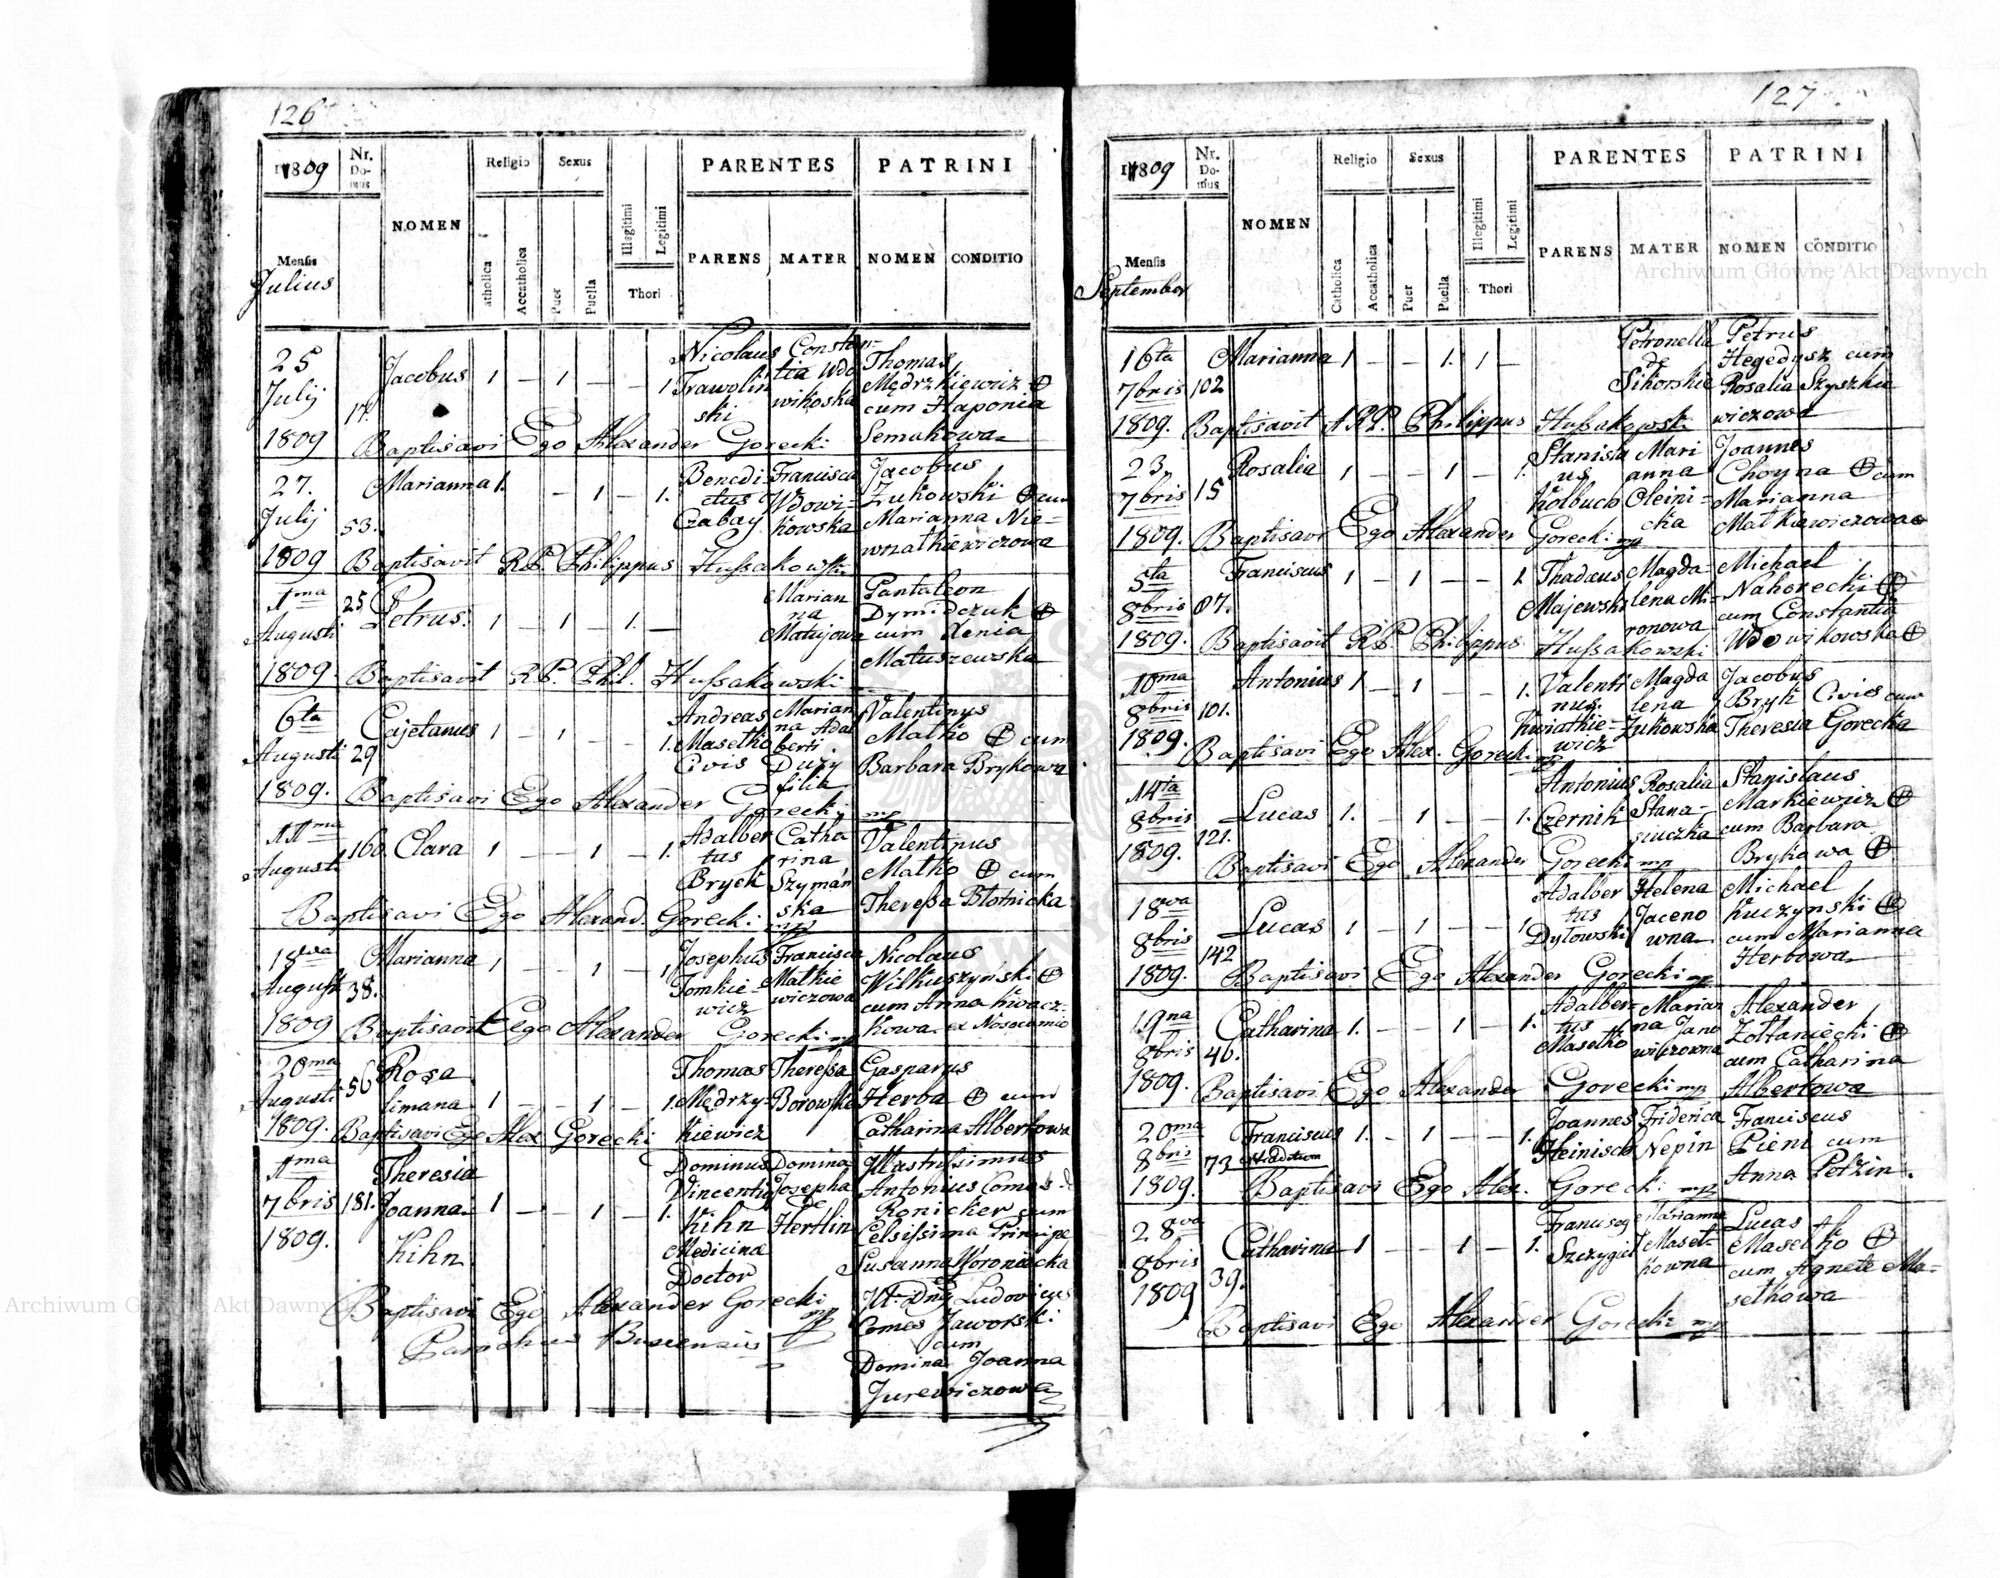 126
1809
Nr. Domus
NOMEN
Religio
Sexus
PARENTES
PATRINI
Catholica
Accatholica
Puer
Puella
Illegitimi
Legitimi
Thori
PARENS
MATER
NOMEN
CONDITIO
Mensis
Julius
25 Julij 1809 17. Jacobus 1 – 1 – – 1. Nicolaus Trawolinski Constantia Wdowikoska Thomas Mędrzkiewicz ⊕ cum Haponia Semakowa
Baptisavi Ego Alexander Gorecki
27. Julij 1809 53. Marianna 1. – – 1 – 1. Benedictus Czabay Francisca Wdowikowska Jacobus Żukowski ⊕ cum Marianna Niewnatkiewiczowa
Baptisavit R.P. Philippus Hussakowski
1ma Augusti 1809. 25 Petrus. 1 – 1 – 1. – Marianna Matujowa Pantaleon Dymidczuk ⊕ cum Xenia Matuszewska
Baptisavit R.P. Phil. Hussakowski
6ta Augusti 1809. 29 Cajetanus 1 – 1 – – 1. Andreas Masetko Civis Marianna Adalberti Duży filia Valentinus Matko ⊕ cum Barbara Brykowa
Baptisavi Ego Alexander Gorecky mp
11ma Augusti 160. Clara 1 – – 1 – 1. Adalbertus Bryck Catharina Szymańska Valentinus Matko ⊕ cum Theressa Błotnicka
Baptisavi Ego Alexand. Gorecki mp
18va Augusti 1809 38. Marianna 1 – – 1 – 1 Josephus Tomkiewicz Francisca Matkiewiczowa Nicolaus Wilkuszyński ⊕ cum Anna Kwaczkowa ex Nosocomio
Baptisavit Ego Alexander Gorecki mp
20ma Augusti 1809. 56 Rosalimana 1 – – 1 – 1. Thomas Mędrzykiewicz Theressa Borowska Gasparus Herba ⊕ cum Catharina Albertowa
Baptisavi Ego Alex Gorecki
1ma 7bris 1809. 181. Theresia Joanna Kihn 1 – – 1 – 1. Dominus Vincentius Kihn Medicina Doctor Domina Josepha de Hertlin Illustrissimus Antonius Comes de Ronicker cum Celsissima Principe Susanna Woroniecka Ill. Dnus Ludovicus Comes Jaworski cum Domina Joanna Jurewiczowa
Baptisavi Ego Alexander Gorecki mp
Parochus Buscensis
127
1809
Nr. Domus
NOMEN
Religio
Sexus
PARENTES
PATRINI
Catholica
Accatholica
Puer
Puella
Illegitimi
Legitimi
Thori
PARENS
MATER
NOMEN
CONDITIO
Mensis
September
16ta 7bris 1809. 102 Marianna 1 – – 1. 1 – Petronella de Sikorskie Petrus Hegedysz cum Rosalia Szyszkiewiczowa
Baptisavit A.R.P. Philippus Hussakowski
23. 7bris 1809. 15 Rosalia 1 – – 1 – 1. Stanislaus Kolbuco Marianna Oleinicka Joannes Choyna ⊕ cum Marianna Matkiewiczowa
Baptisavi Ego Alexander Gorecki mp
5ta 8bris 1809. 87. Franciscus 1 – 1 – – 1 Thadaus Majewski Magdalena Mironowa Michael Nahorecki ⊕ cum Constantia Wdowikowska ⊕
Baptisavit R.P. Philippus Hussakowski
10ma 8bris 1809. 101. Antonius 1 – 1 – – 1. Valentinus Kwiatkiewicz Magdalena Żukowska Jacobus Bryk Civis cum Theresia Gorecka
Baptisavi Ego Alex. Gorecki mp
14ta 8bris 1809. 121. Lucas 1. – 1 – – 1. Antonius Czernik Rosalia Stanasiuczka Stanislaus Markiewicz ⊕ cum Barbara Brykowa ⊕
Baptisavi Ego Alexander Gorecki mp
18va 8bris 1809. 142 Lucas 1 – 1 – – 1 Adalbertus Dyłowski Helena Jacenowna Michael Kuczynski ⊕ cum Marianna Herbowa
Baptisavi Ego Alexander Gorecki mp
19na 8bris 1809. 46. Catharina 1. – – 1 – 1. Adalbertus Masetko Marianna Janowiczowna Alexander Żołtaniecki ⊕ cum Catharina Albertowa
Baptisavi Ego Alexander Gorecki mp
20ma 8bris 1809. 73 Franciscus 1. – 1 – – 1. Joannes Heinisch Friderica Nepin Franciscus Pient cum Anna Petzin.
Baptisavi Ego Alex. Gorecki mp
28va 8bris 1809 39. Catharina 1 – – 1 – 1. Franciscus Szczygiel Marianna Masetkowna Lucas Masetko ⊕ cum Agnete Masetkowa
Baptisavi Ego Alexander Gorecki mp
Archiwum Główne Akt Dawnych
Archiwum Główne Akt Dawnych